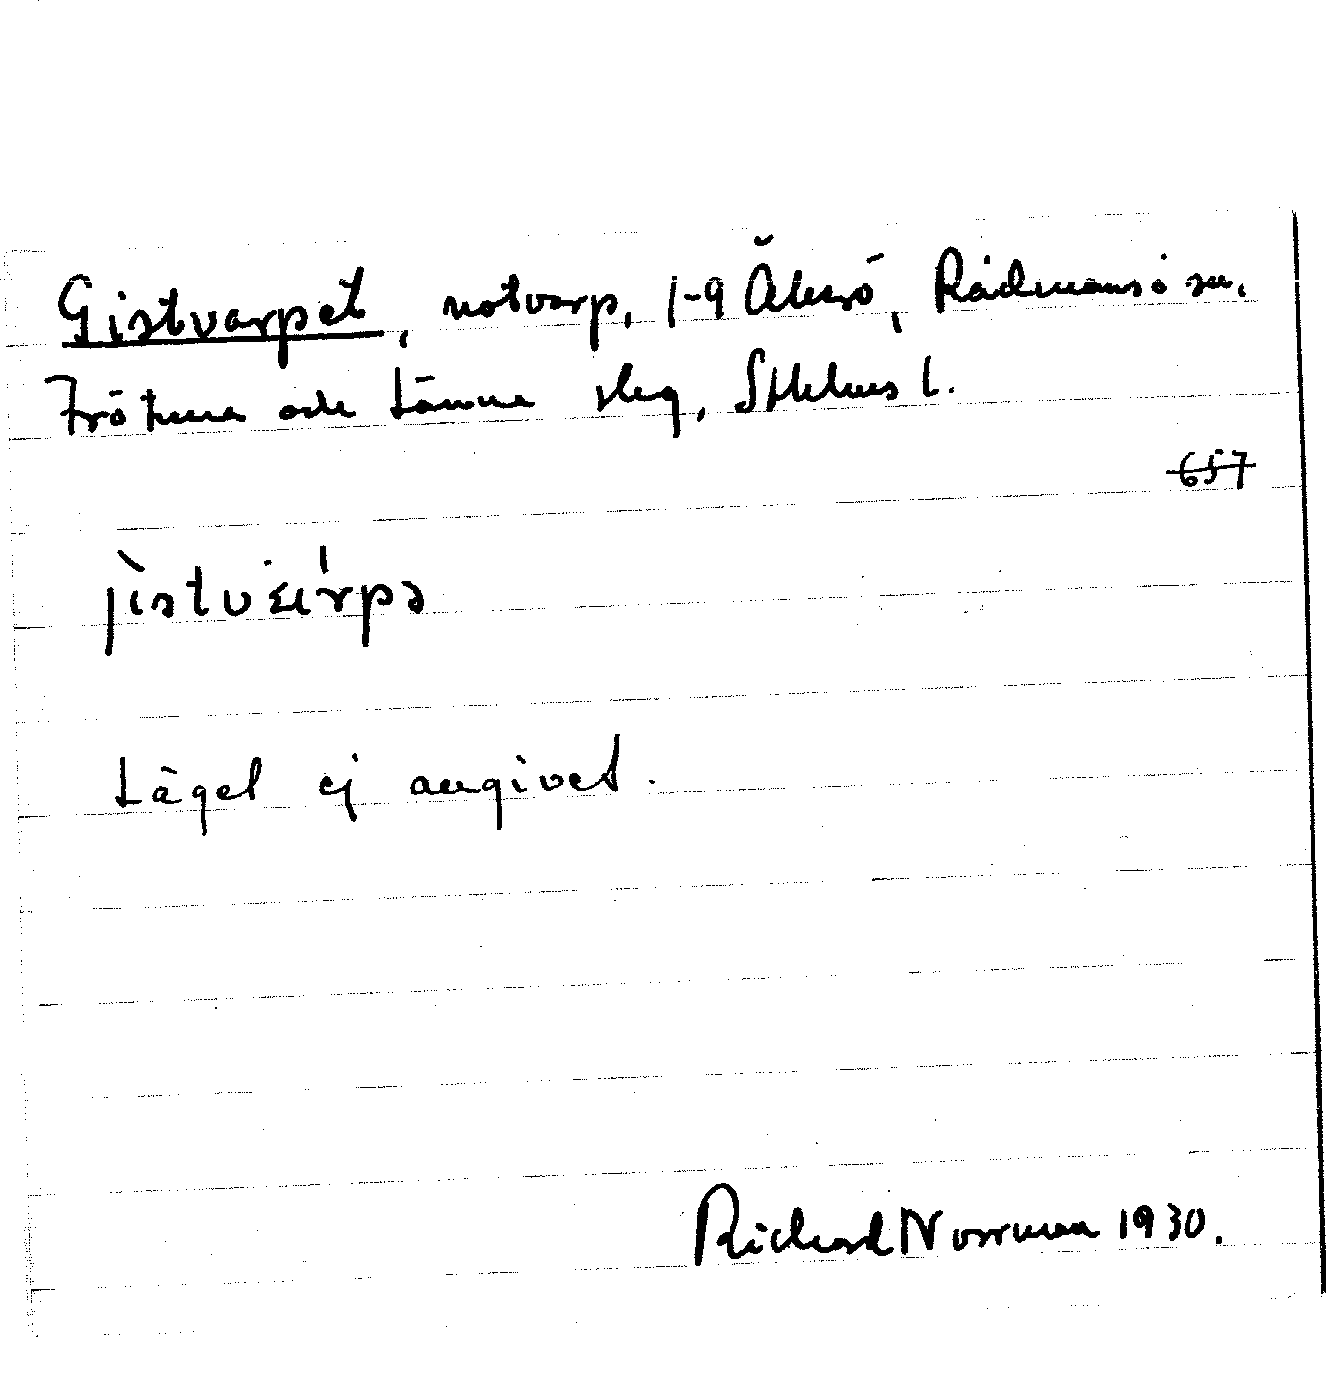 Gistvarpet, notvarp, 1-9 Åkerö, Rådmansö sn.
Frötuna och Länna skg, Sthlms l.
657
Läget ej angivet.
Richard Norrman 1930.